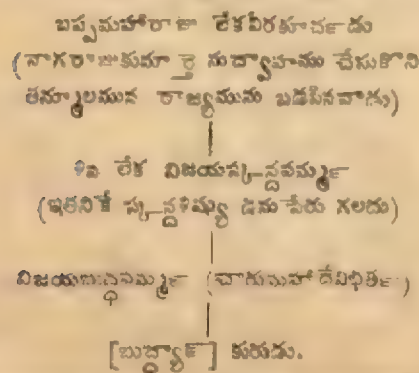 బప్పమహారాజు లేకవీరకూర్చవర్మ
(నాగరాజుకుమా ర్తె నుద్వాహము చేసుకొని
తన్మూలమున రాజ్యమును బడసినవాడు)
శివ లేక విజయస్కన్దవర్మ
(ఇతనికే స్కన్దశిష్యు డను పేరు గలదు)
విజయబుద్ధవర్మ (చారుమహా దేవిభర్త)
[బుద్ధ్యా] కురుడు.